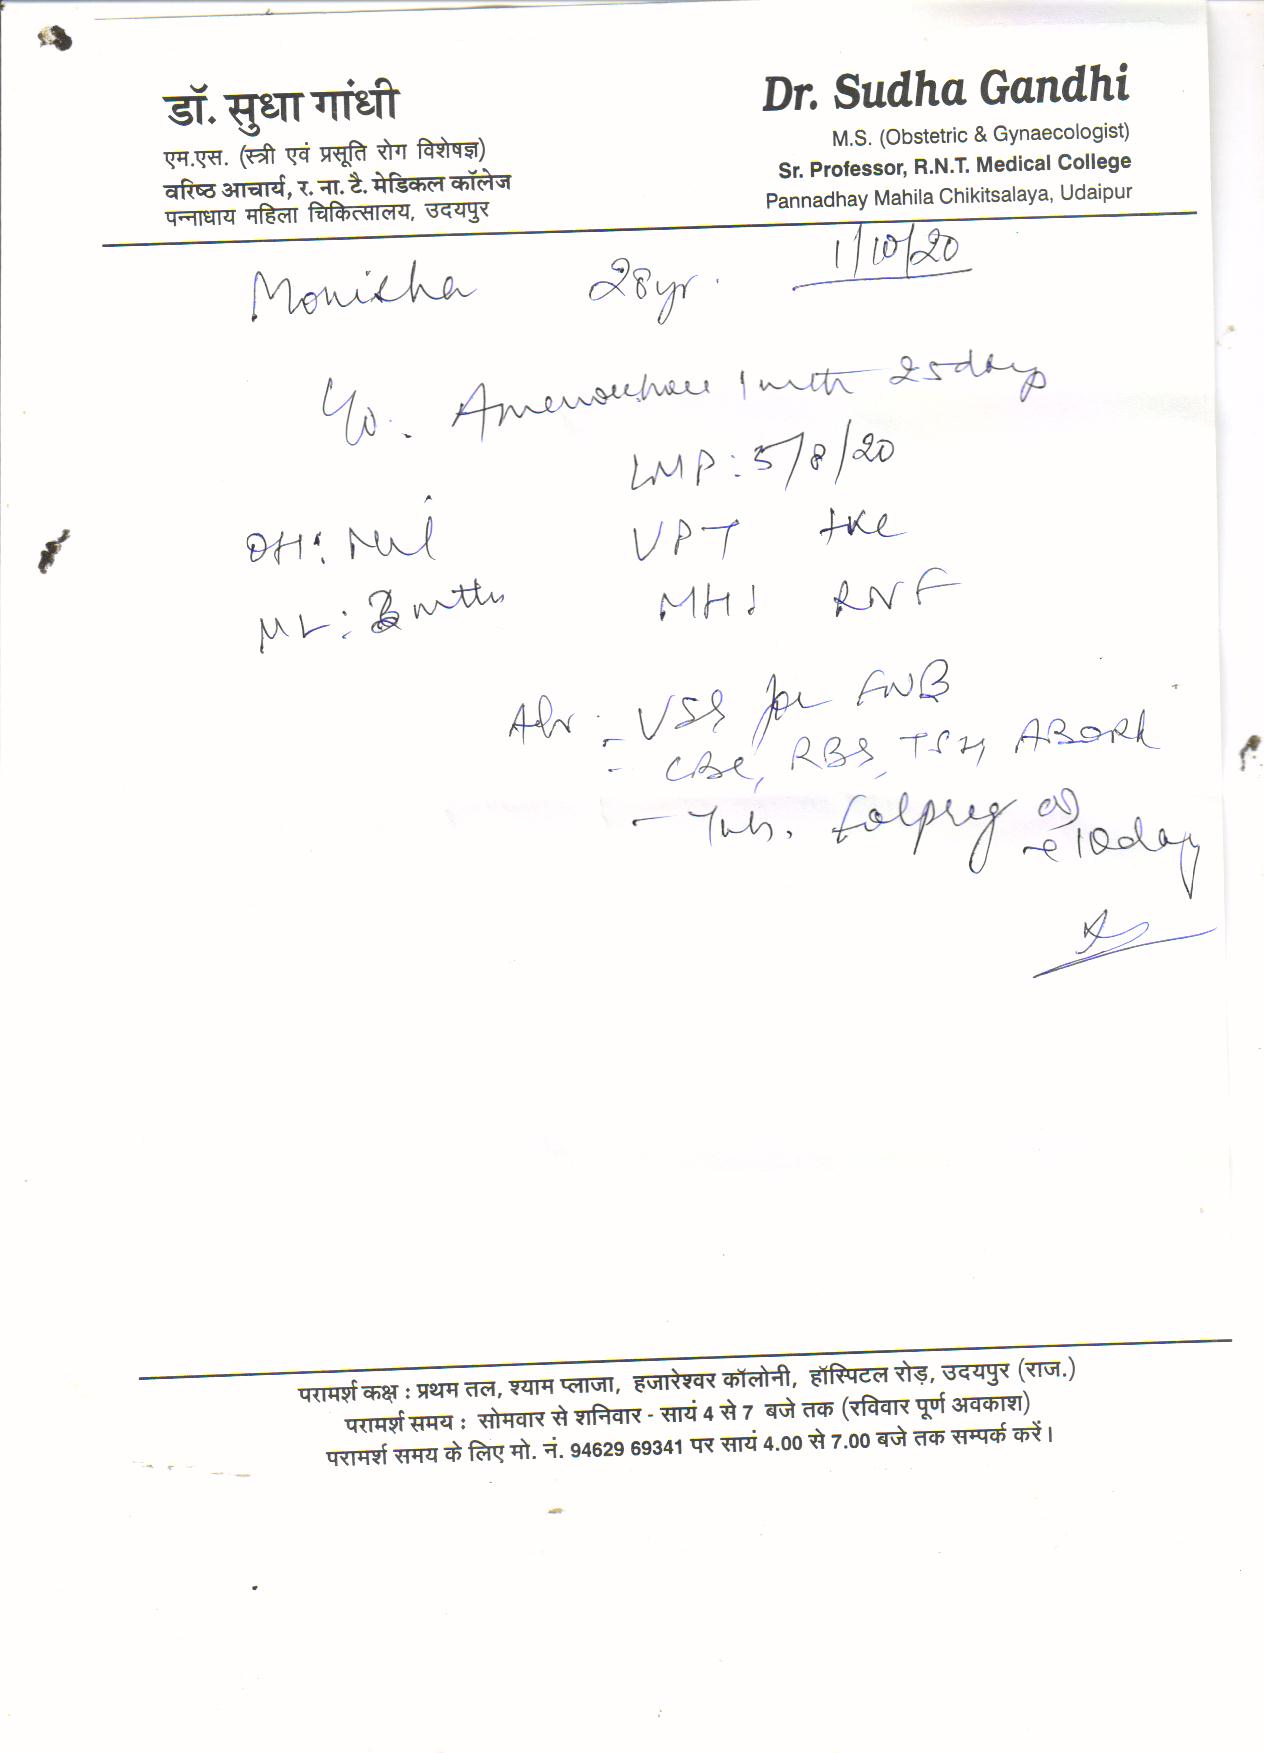 डॉ. सुधा गांधी
एम.एस. (स्त्री एवं प्रसूति रोग विशेषज्ञ)
वरिष्ठ आचार्य, र. ना. टै. मेडिकल कॉलेज
पन्नाधाय महिला चिकित्सालय, उदयपुर
Dr. Sudha Gandhi
M.S. (Obstetric & Gynaecologist)
Sr. Professor, R.N.T. Medical College
Pannadhay Mahila Chikitsalaya, Udaipur
1/10/20
Monisha 28yr.
C/o. Amenorrhoea 1 mth 25days
LMP: 5/8/20
OH: Nul VPT +ve
ML: mths MH: RNF
Adv: - USG for FWB
- CBC, RBS, TSH, ABORh
- Tab. Folpreg OD
10days
परामर्श कक्ष : प्रथम तल, श्याम प्लाजा, हजारेश्वर कॉलोनी, हॉस्पिटल रोड़, उदयपुर (राज.)
परामर्श समय : सोमवार से शनिवार - सायं 4 से 7 बजे तक (रविवार पूर्ण अवकाश)
परामर्श समय के लिए मो. नं. 94629 69341 पर सायं 4.00 से 7.00 बजे तक सम्पर्क करें।